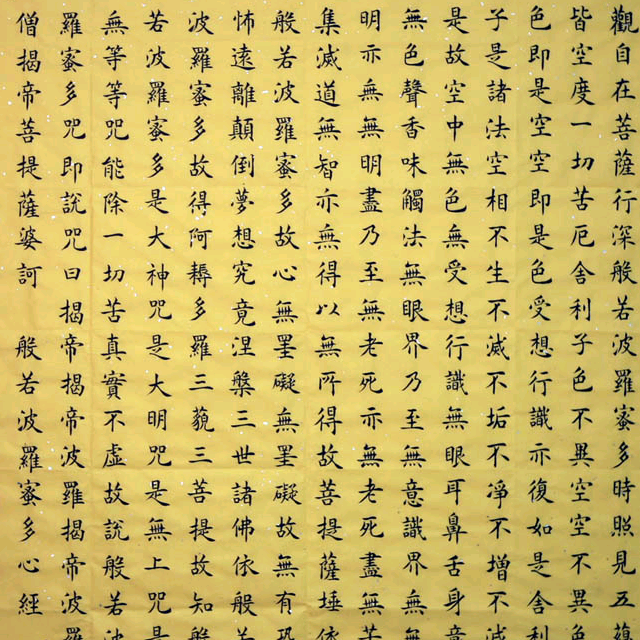 觀自在菩薩行深般若波羅蜜多時照見五蘊
皆空度一切苦厄舍利子色不異空空不異色
色即是空空即是色受想行識亦復如是舍利
子是諸法空相不生不滅不垢不淨不增不減
是故空中無色無受想行識無眼耳鼻舌身意
無色聲香味觸法無眼界乃至無意識界無無
明亦無無明盡乃至無老死亦無老死盡無苦
集滅道無智亦無得以無所得故菩提薩埵依
般若波羅蜜多故心無罣礙無罣礙故無有恐
怖遠離顛倒夢想究竟涅槃三世諸佛依般若
波羅蜜多故得阿耨多羅三藐三菩提故知般
若波羅蜜多是大神咒是大明咒是無上咒是
無等等咒能除一切苦真實不虛故說般若波
羅蜜多咒即說咒曰揭帝揭帝波羅揭帝波羅
僧揭帝菩提薩婆訶 般若波羅蜜多心經